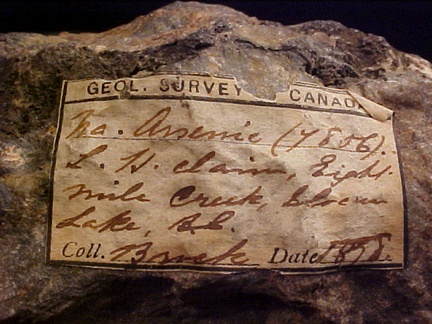 GEOL. SURVEY CANADA
Na. Arsenic (7856).
L. H. claim, Eight
mile Creek, Slocan
Lake, B.C.
Coll. Brock Date 1898.